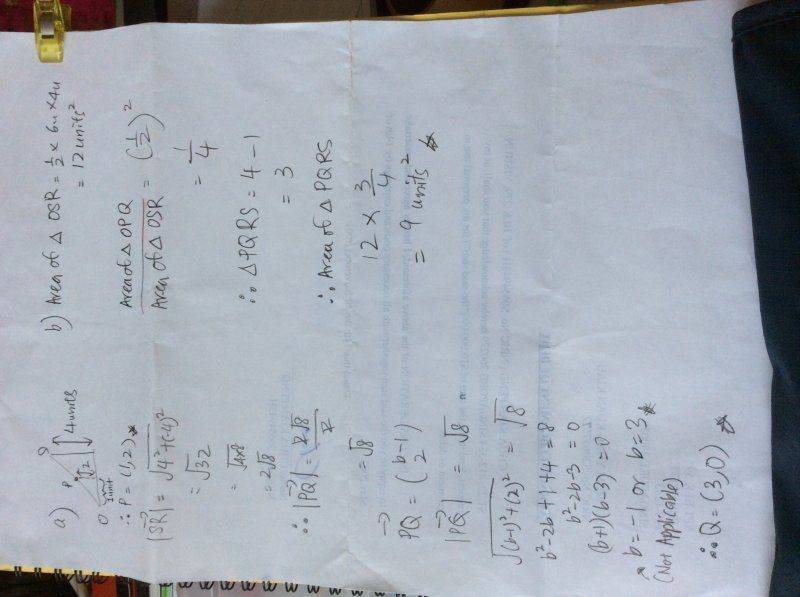 a)
P
Q
2
4 units
O
1 unit
∴ P = (1, 2)
|SR| = √(4² + (-4)²)
= √32
= √(4×8)
= 2√8
∴ |PQ| = 2√8 / 2
= √8
PQ = (b-1 / 2)
|PQ| = √8
√((b-1)² + (2)²) = √8
b² - 2b + 1 + 4 = 8
b² - 2b - 3 = 0
(b+1)(b-3) = 0
b = -1 or b = 3
(Not Applicable)
∴ Q = (3, 0)
b) Area of △ OSR = ½ × 6u × 4u
= 12 units²
Area of △ OPQ / Area of △ OSR = (½)²
= ¼
∴ △ PQRS = 4 - 1
= 3
∴ Area of △ PQRS
12 × ¾
= 9 units²